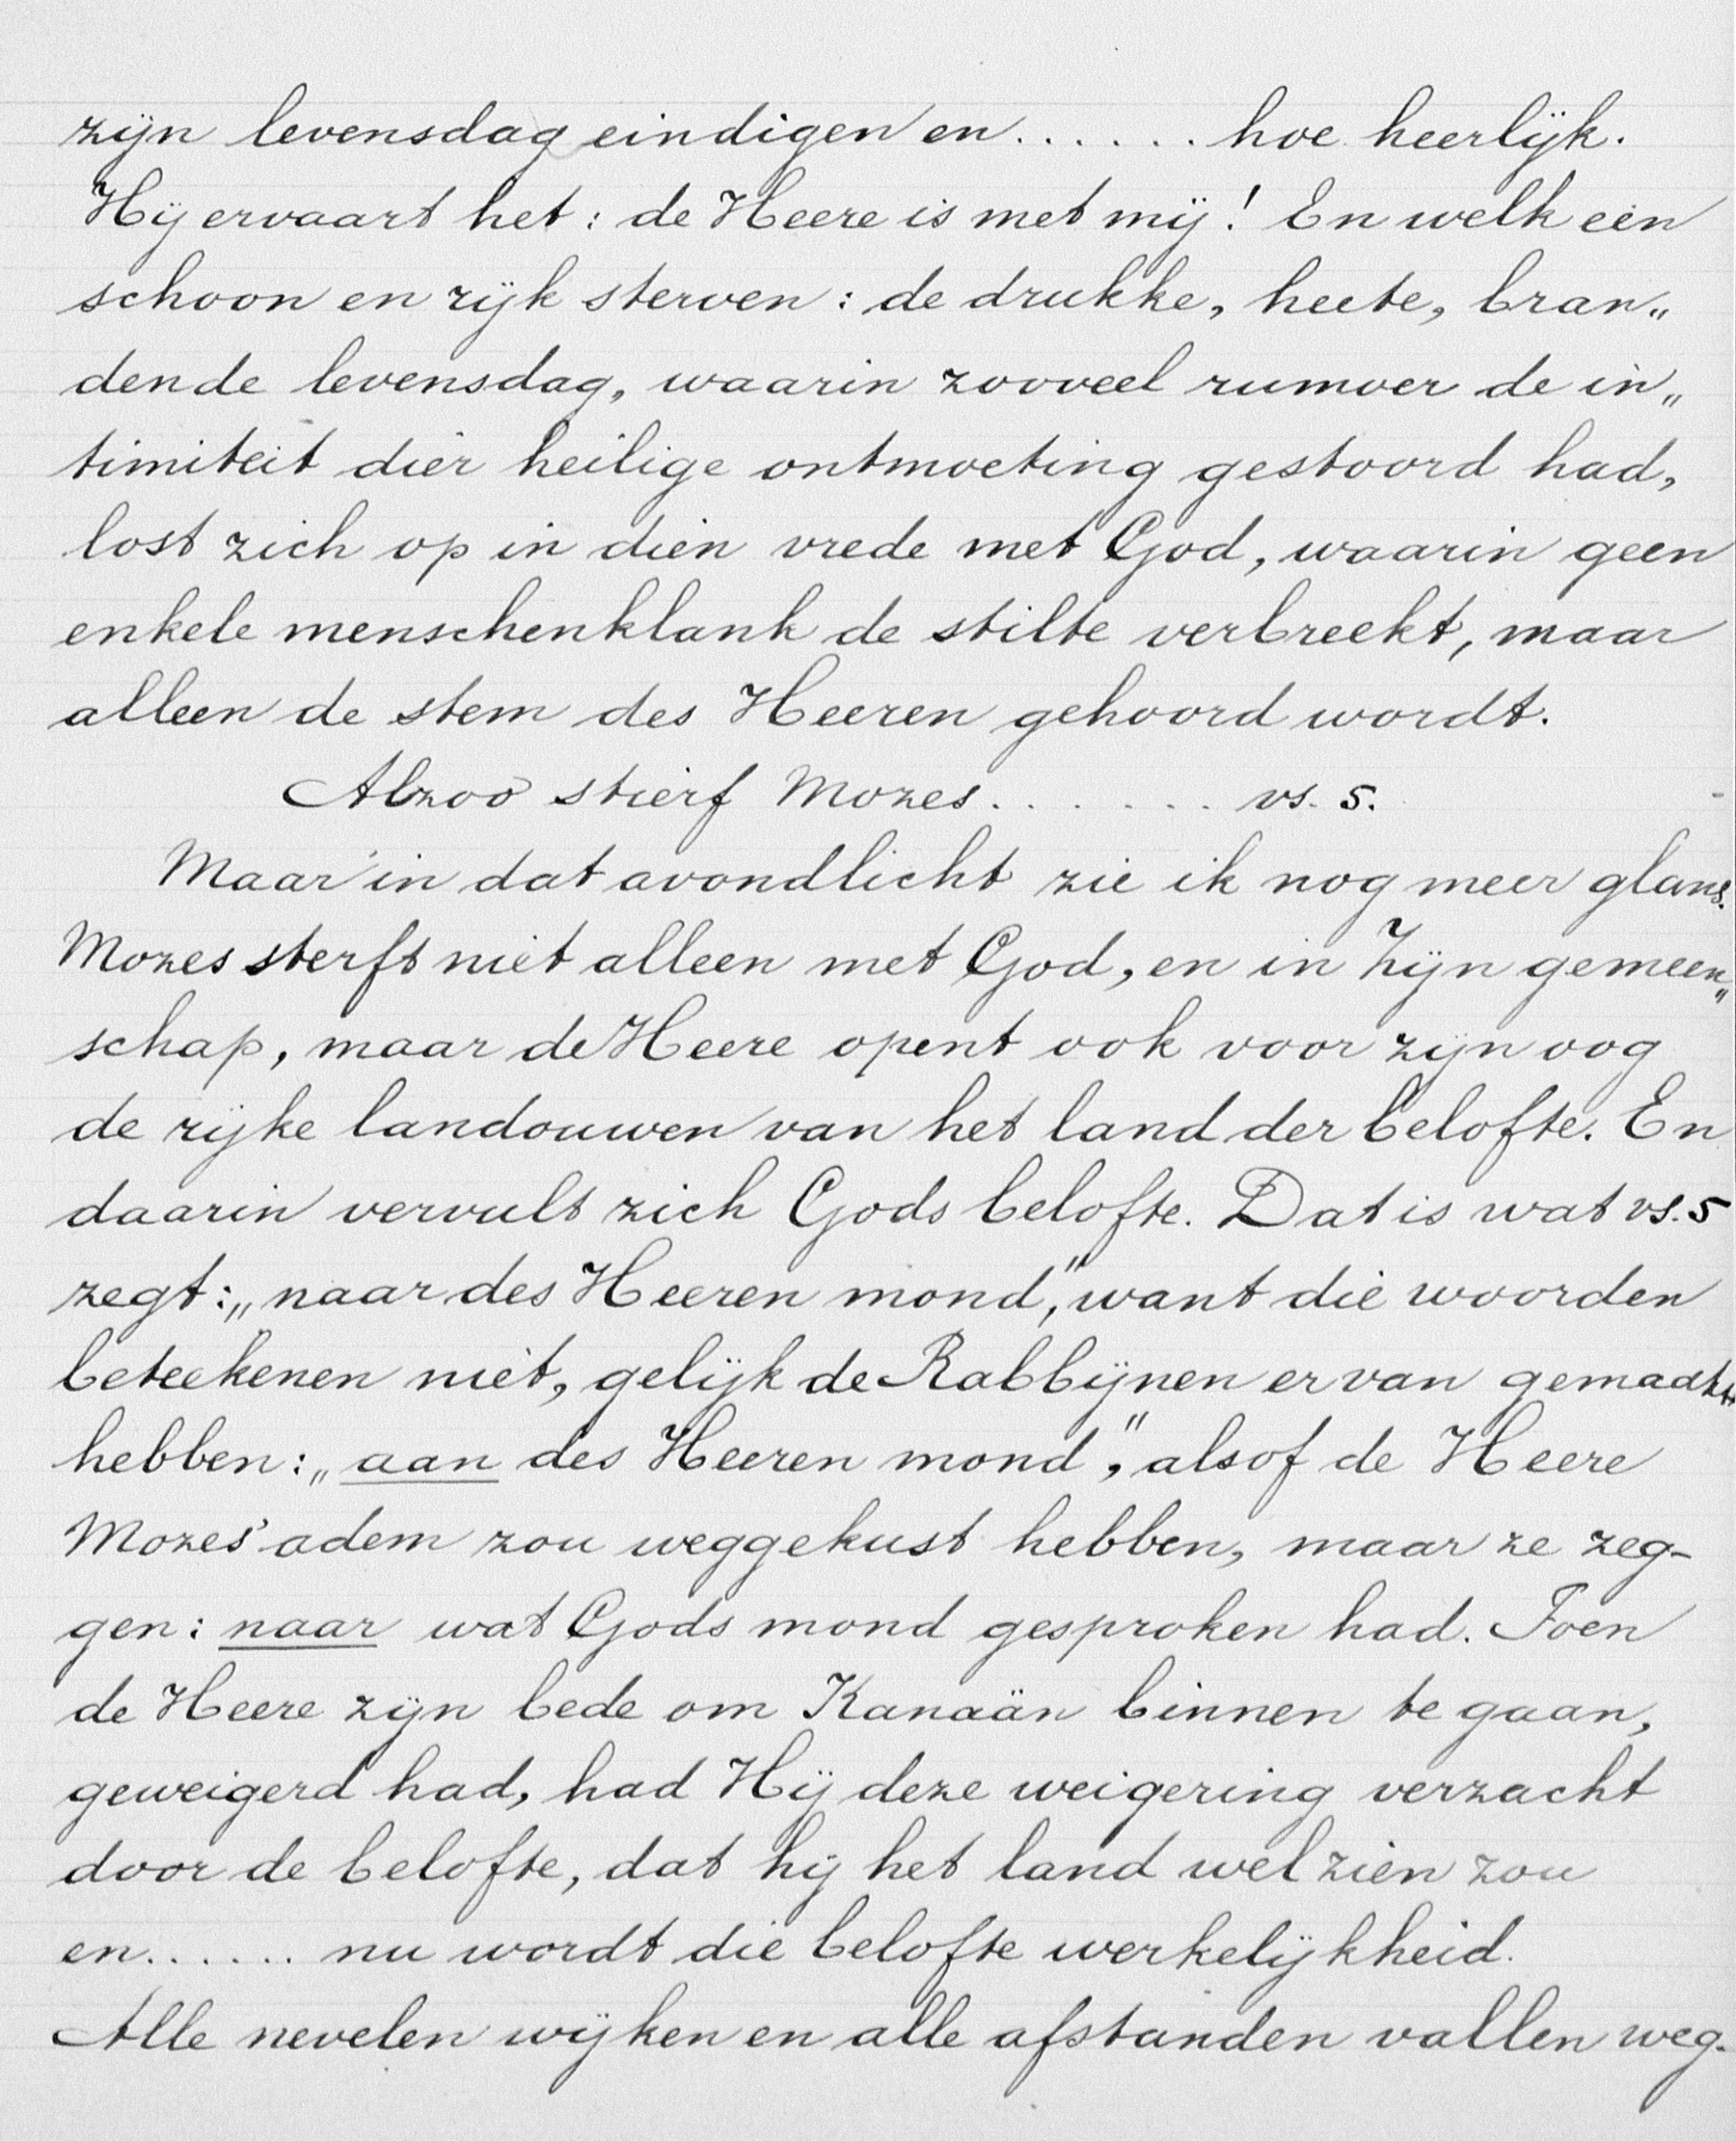 zijn levensdag eindigen en . . . . . . hoe heerlijk.
Hij ervaart het : de Heere is met mij ! En welk een
schoon en rijk sterven : de drukke, heete, bran„
dende levensdag, waarin zooveel rumoer de in„
timiteit dier heilige ontmoeting gestoord had,
lost zich op in dien vrede met God, waarin geen
enkele menschenklank de stilte verbreekt, maar
alleen de stem des Heeren gehoord wordt.
Alzoo stierf Mozes . . . . . . . vs. 5.
Maar in dat avondlicht zie ik nog meer glans.
Mozes sterft niet alleen met God, en in Zijn gemeen„
schap, maar de Heere opent ook voor zijn oog
de rijke landouwen van het land der belofte. En
daarin vervult zich Gods belofte. Dat is wat vs. 5
zegt : „naar des Heeren mond," want die woorden
beteekenen niet, gelijk de Rabbijnen er van gemaakt
hebben : „aan des Heeren mond", alsof de Heere
Mozes' adem zou weggekust hebben, maar ze zeg-
gen : naar wat Gods mond gesproken had. Toen
de Heere zijn bede om Kanaän binnen te gaan,
geweigerd had, had Hij deze weigering verzacht
door de belofte, dat hij het land wel zien zou
en . . . . . . nu wordt die belofte werkelijkheid.
Alle nevelen wijken en alle afstanden vallen weg.